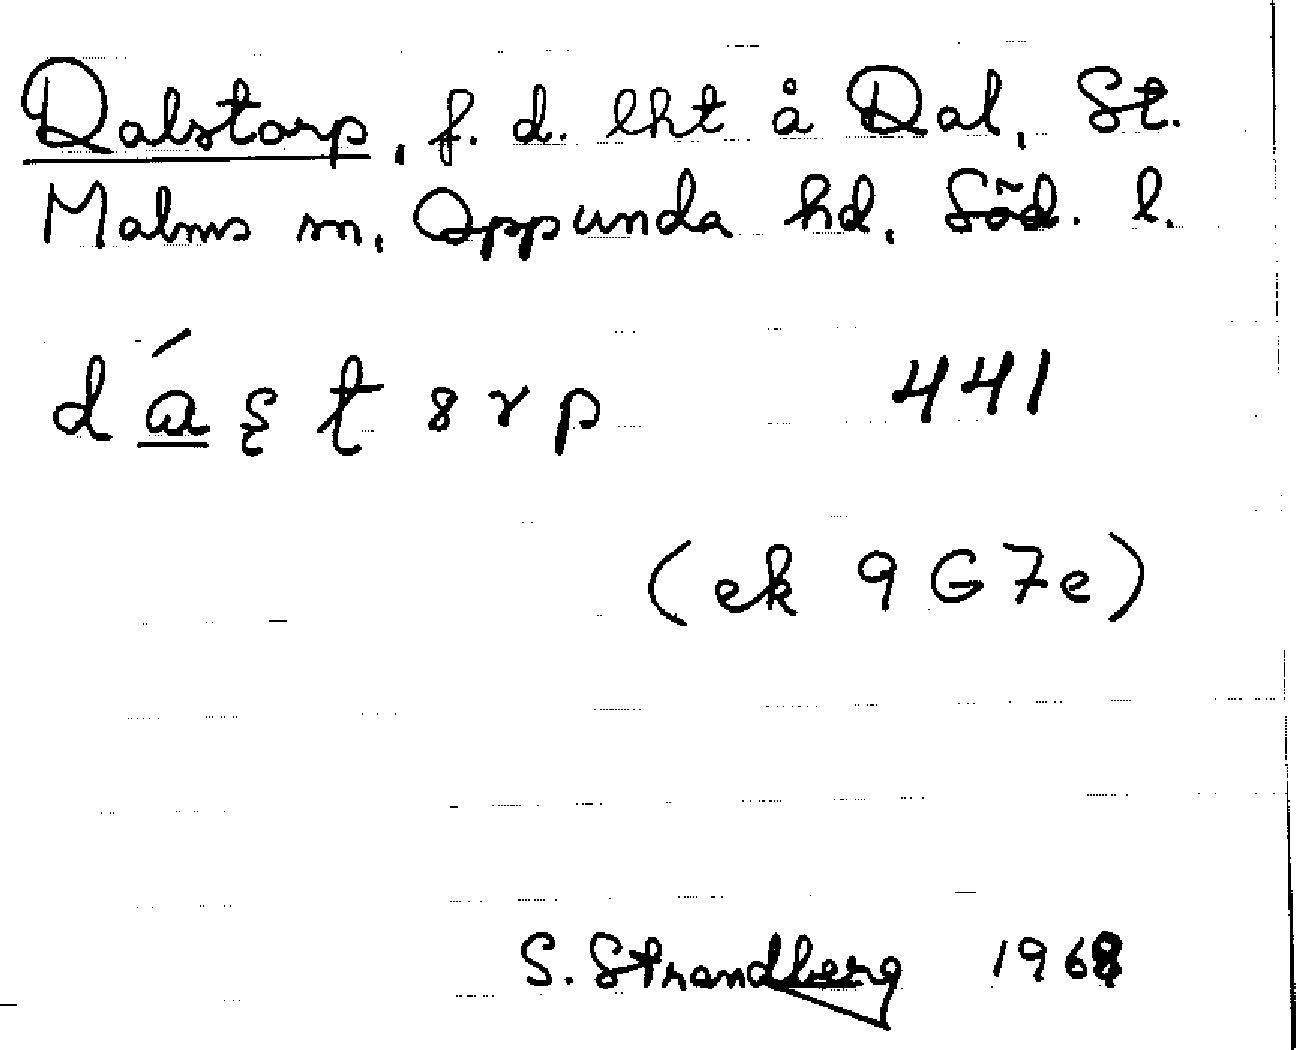 Dalstorp, f. d. lht å Dal, St.
Malms sn, Oppunda hd, Söd. l.
441
(ek 9 G 7e)
S. Strandberg 1968